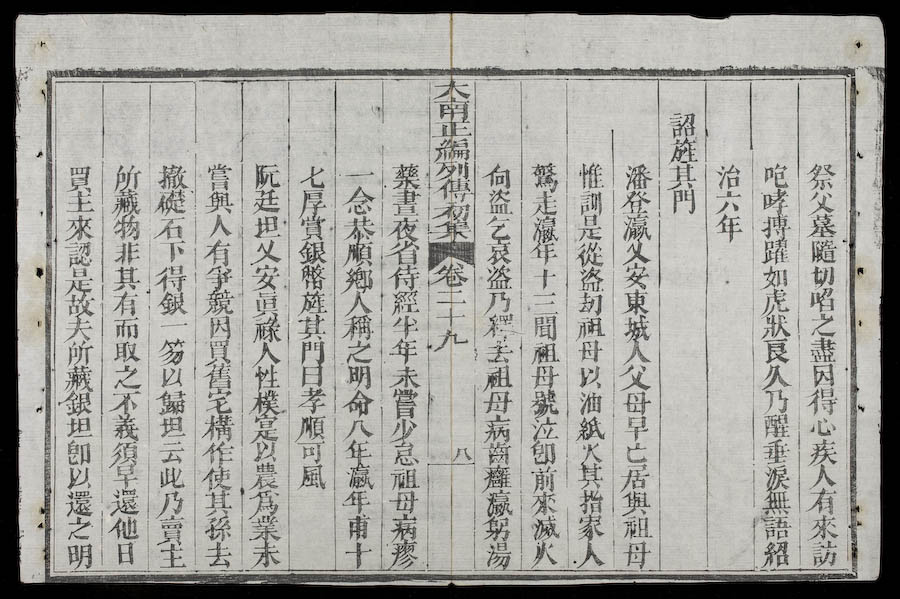 祭父墓隨切啗之盡因得心疾人有來訪
咆哮搏躍如虎狀良久乃醒垂淚無語紹
治六年
詔旌其門
潘登瀛乂安東城人父母早亡居與祖母
惟訓是從盜刧祖母以油紙火其指家人
驚走瀛年十三聞祖母號泣卽前來滅火
向盜乞哀盜乃釋去祖母病齒癰瀛躬湯
大南正編列傳初集 卷二十九 八
藥晝夜省待經半年未嘗少怠祖母病瘳
一念恭順鄉人稱之明命八年瀛年甫十
七厚賞銀幣旌其門曰孝順可風
阮廷坦乂安眞祿人性樸寔以農爲業未
嘗與人有爭競因買舊宅構作使其孫去
撤礎石下得銀一笏以歸坦云此乃賣主
所藏物非其有而取之不義須早還他日
買主來認是故夫所藏銀坦卽以還之明